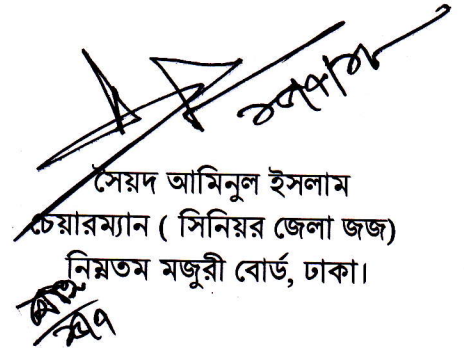 সৈয়দ আমিনুল ইসলাম
চেয়ারম্যান ( সিনিয়র জেলা জজ)
নিম্নতম মজুরী বোর্ড, ঢাকা।